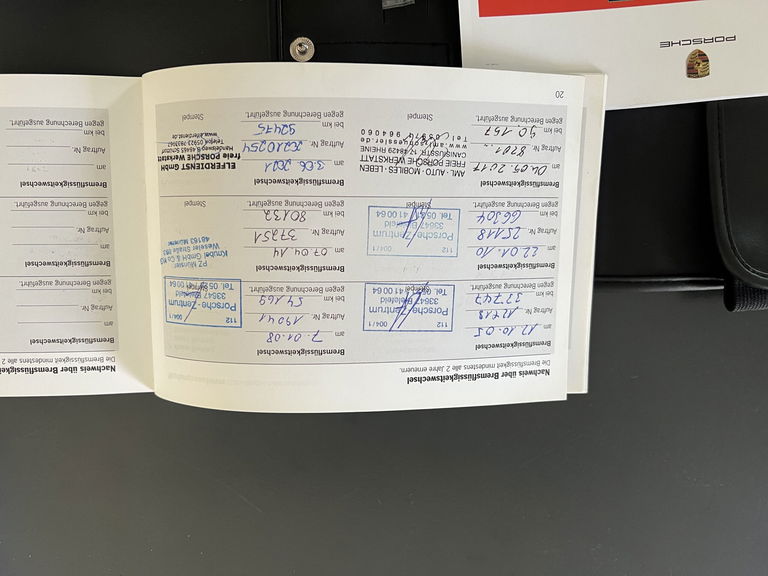 Nachweis über Bremsflüssigkeitswechsel
Die Bremsflüssigkeit mindestens alle 2 Jahre erneuern.
Bremsflüssigkeitswechsel
am 12.10.05
Auftrag Nr. 12718
bei km 37747
gegen Berechnung ausgeführt.
112 004/1
Porsche-Zentrum
33647 Bielefeld
Tel. 05 21/ 41 00 64
Stempel
Bremsflüssigkeitswechsel
am 7.01.08
Auftrag Nr. 19041
bei km 54169
gegen Berechnung ausgeführt.
112 004/1
Porsche-Zentrum
33647 Bielefeld
Tel. 05 21/ 41 00 64
Stempel
Bremsflüssigkeitswechsel
am 22.01.10
Auftrag Nr. 25118
bei km 66304
gegen Berechnung ausgeführt.
112 004/1
Porsche-Zentrum
33647 Bielefeld
Tel. 05 21/ 41 00 64
Stempel
Bremsflüssigkeitswechsel
am 07.04.14
Auftrag Nr. 37251
bei km 80132
gegen Berechnung ausgeführt.
PZ Münster
Knubel GmbH & Co KG
Weseler Straße
48163 Münster
Stempel
Bremsflüssigkeitswechsel
am 04.05.2017
Auftrag Nr. 8201
bei km 90.157
gegen Berechnung ausgeführt.
AML · AUTO · MOBILES · LEBEN
FREIE PORSCHE WERKSTATT
CANISIUSSTR. 17, 48429 RHEINE
Stempel
Bremsflüssigkeitswechsel
am 3.06.2021
Auftrag Nr.
bei km 92475
gegen Berechnung ausgeführt.
ELFERDIENST GmbH
freie PORSCHE Werkstatt
www.elferdienst.de
Stempel
20
Nachweis über Bremsflüssigkei
Die Bremsflüssigkeit mindestens alle 2
Bremsflüssigkeitswechsel
am
Auftrag Nr.
bei km
gegen Berechnung ausgeführt.
Bremsflüssigkeitswechsel
am
Auftrag Nr.
bei km
gegen Berechnung ausgeführt.
Bremsflüssigkeitswechsel
am
Auftrag Nr.
bei km
gegen Berechnung ausgeführt.
PORSCHE